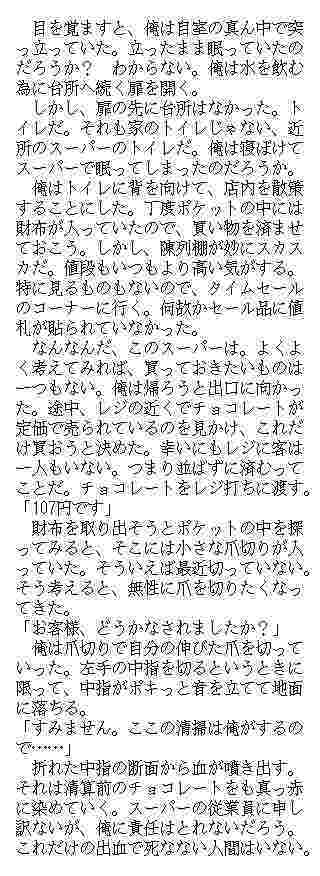 目を覚ますと、俺は自室の真ん中で突
っ立っていた。立ったまま眠っていたの
だろうか？　わからない。俺は水を飲む
為に台所へ続く扉を開く。
　しかし、扉の先に台所はなかった。ト
イレだ。それも家のトイレじゃない、近
所のスーパーのトイレだ。俺は寝ぼけて
スーパーで眠ってしまったのだろうか。
　俺はトイレに背を向けて、店内を散策
することにした。丁度ポケットの中には
財布が入っていたので、買い物を済ませ
ておこう。しかし、陳列棚が妙にスカス
カだ。値段もいつもより高い気がする。
特に見るものもないので、タイムセール
のコーナーに行く。何故かセール品に値
札が貼られていなかった。
　なんなんだ、このスーパーは。よくよ
く考えてみれば、買っておきたいものは
一つもない。俺は帰ろうと出口に向かっ
た。途中、レジの近くでチョコレートが
定価で売られているのを見かけ、これだ
け買おうと決めた。幸いにもレジに客は
一人もいない。つまり並ばずに済むって
ことだ。チョコレートをレジ打ちに渡す。
「107円です」
　財布を取り出そうとポケットの中を探
ってみると、そこには小さな爪切りが入
っていた。そういえば最近切っていない。
そう考えると、無性に爪を切りたくなっ
てきた。
「お客様、どうかなされましたか？」
　俺は爪切りで自分の伸びた爪を切って
いった。左手の中指を切るというときに
限って、中指がポキっと音を立てて地面
に落ちる。
「すみません。ここの清掃は俺がするの
で……」
　折れた中指の断面から血が噴き出す。
それは清算前のチョコレートをも真っ赤
に染めていく。スーパーの従業員に申し
訳ないが、俺に責任はとれないだろう。
これだけの出血で死なない人間はいない。